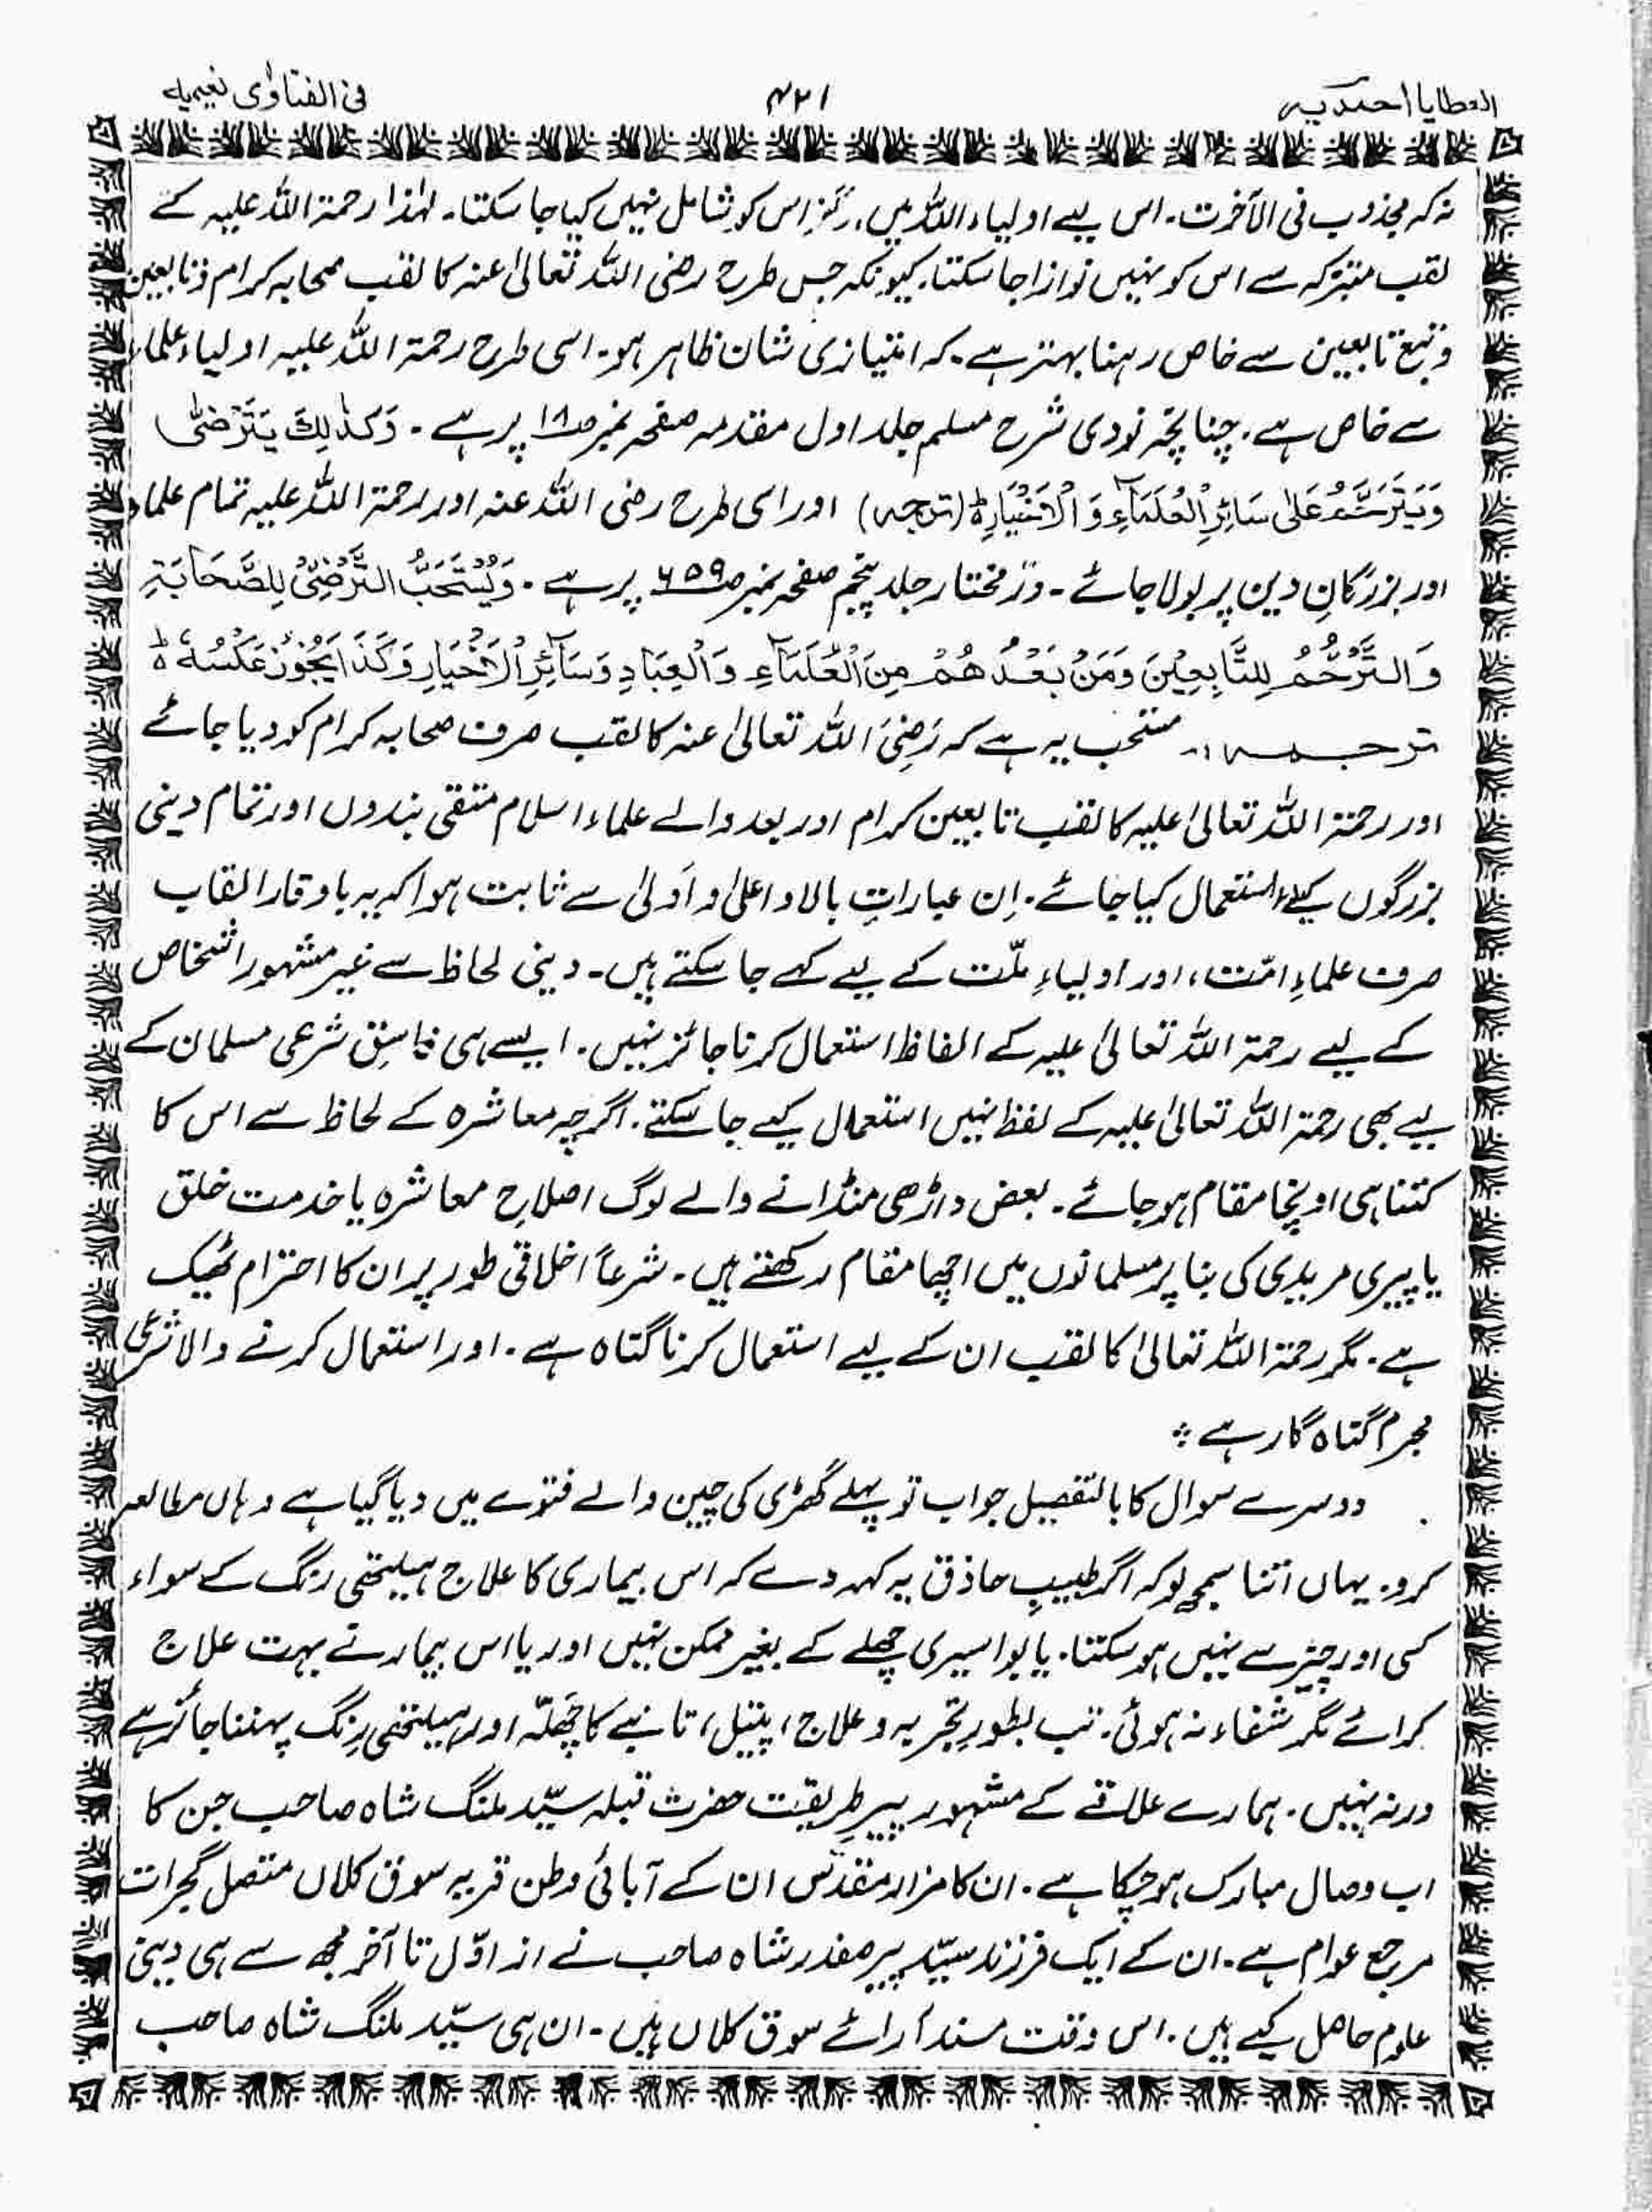 العطایا احمدیہ
۴۲۱
فی الفتاوٰی نعیمیہ
نہ کہ مجذوب فی الآخرت۔ اس لیے اولیاء اللہ میں ہرگز اس کو شامل نہیں کیا جا سکتا۔ لہٰذا رحمۃ اللہ علیہ کے
لقب متبرکہ سے اس کو نہیں نوازا جا سکتا۔ کیونکہ جس طرح رضی اللہ تعالیٰ عنہ کا لقب صحابہ کرام و تابعین
و تبع تابعین سے خاص رہنا بہتر ہے۔ کہ امتیازی شان ظاہر ہو۔ اسی طرح رحمۃ اللہ علیہ اولیاء علماء
سے خاص ہے۔ چنانچہ نودی شرح مسلم جلد اول مقدمہ صفحہ نمبر ص۱۸ پر ہے۔ وَکَذٰلِکَ یَتَرَضّٰی
وَیَتَرَحَّمُ عَلٰی سَائِرِ الْعُلَمَآءِ وَالْاَخْیَارِ ؕ (ترجمہ) اور اسی طرح رضی اللہ عنہ اور رحمۃ اللہ علیہ تمام علماء
اور بزرگانِ دین پر بولا جائے۔ درّ مختار جلد پنجم صفحہ نمبر ص۶۵۹ پر ہے۔ وَیُسْتَحَبُّ التَّرَضِّیْ لِلصَّحَابَۃِ
وَالتَّرَحُّمُ لِلتَّابِعِیْنَ وَمَنْ بَعْدَھُمْ مِنَ الْعُلَمَآءِ وَالْعِبَادِ وَسَآئِرِ الْاَخْیَارِ وَکَذَا یَجُوْزُ عَکْسُہٗ ؕ
ترجمہ:۔ مستحب یہ ہے کہ رَضِیَ اللہ تعالیٰ عنہ کا لقب صرف صحابہ کرام کو دیا جائے
اور رحمۃ اللہ تعالیٰ علیہ کا لقب تابعین کرام اور بعد والے علماء اسلام متقی بندوں اور تمام دینی
بزرگوں کیلئے استعمال کیا جائے۔ اِن عباراتِ بالا و اعلیٰ و اَولیٰ سے ثابت ہوا کہ یہ باوقار القاب
صرف علماءِ امّت، اور اولیاءِ ملّت کے لیے کہے جا سکتے ہیں۔ دینی لحاظ سے غیر مشہور اشخاص
کے لیے رحمۃ اللہ تعالیٰ علیہ کے الفاظ استعمال کرنا جائز نہیں۔ ایسے ہی فاسِق شرعی مسلمان کے
لیے بھی رحمۃ اللہ تعالیٰ علیہ کے لفظ نہیں استعمال کیے جا سکتے۔ اگرچہ معاشرہ کے لحاظ سے اس کا
کتنا ہی اونچا مقام ہو جائے۔ بعض داڑھی منڈانے والے لوگ اصلاحِ معاشرہ یا خدمت خلق
یا پیری مریدی کی بنا پر مسلمانوں میں اچھا مقام رکھتے ہیں۔ شرعاً اخلاقی طور پر ان کا احترام ٹھیک
ہے۔ مگر رحمۃ اللہ تعالیٰ کا لقب ان کے لیے استعمال کرنا گناہ ہے۔ اور استعمال کرنے والا شرعی
مجرم گناہ گار ہے ؞
دوسرے سوال کا بالتفصیل جواب تو پہلے گھڑی کی چین والے فتوے میں دیا گیا ہے وہاں مطالعہ
کرو۔ یہاں اتنا سمجھ لو کہ اگر طبیبِ حاذق یہ کہہ دے کہ اس بیماری کا علاج ہیلتھی رنگ کے سواء
کسی اور چیز سے نہیں ہو سکتا۔ یا بواسیری چھلے کے بغیر ممکن نہیں اور یا اس بیمار نے بہت علاج
کرائے مگر شفاء نہ ہوئی۔ تب بطورِ تجربہ و علاج، پیتل، تانبے کا چَھلّہ اور ہیلتھی رِنگ پہننا جائز ہے
ورنہ نہیں۔ ہمارے علاقے کے مشہور پیرِ طریقت حضرت قبلہ سیّد ملنگ شاہ صاحب جن کا
اب وصال مبارک ہو چکا ہے۔ ان کا مزار مقدّس ان کے آبائی وطن قریہ سوق کلاں متصل گجرات
مرجع عوام ہے۔ ان کے ایک فرزند سیّد پیر صفدر شاہ صاحب نے از اوّل تا آخر مجھ سے ہی دینی
علوم حاصل کیے ہیں۔ اس وقت مسند آرائے سوق کلاں ہیں۔ ان ہی سیّد ملنگ شاہ صاحب